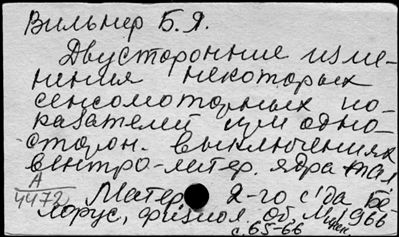 Вильнер Б.Я.
Двусторонние изме-
нения некоторых
сенсомоторных по-
казателей при одно-
сторон. выключениях
вентро-латер. ядра тал.
А
4472
Матер. 2-го с'да Бе-
лорус. физиол. Об. Минск 1966
с. 65-66